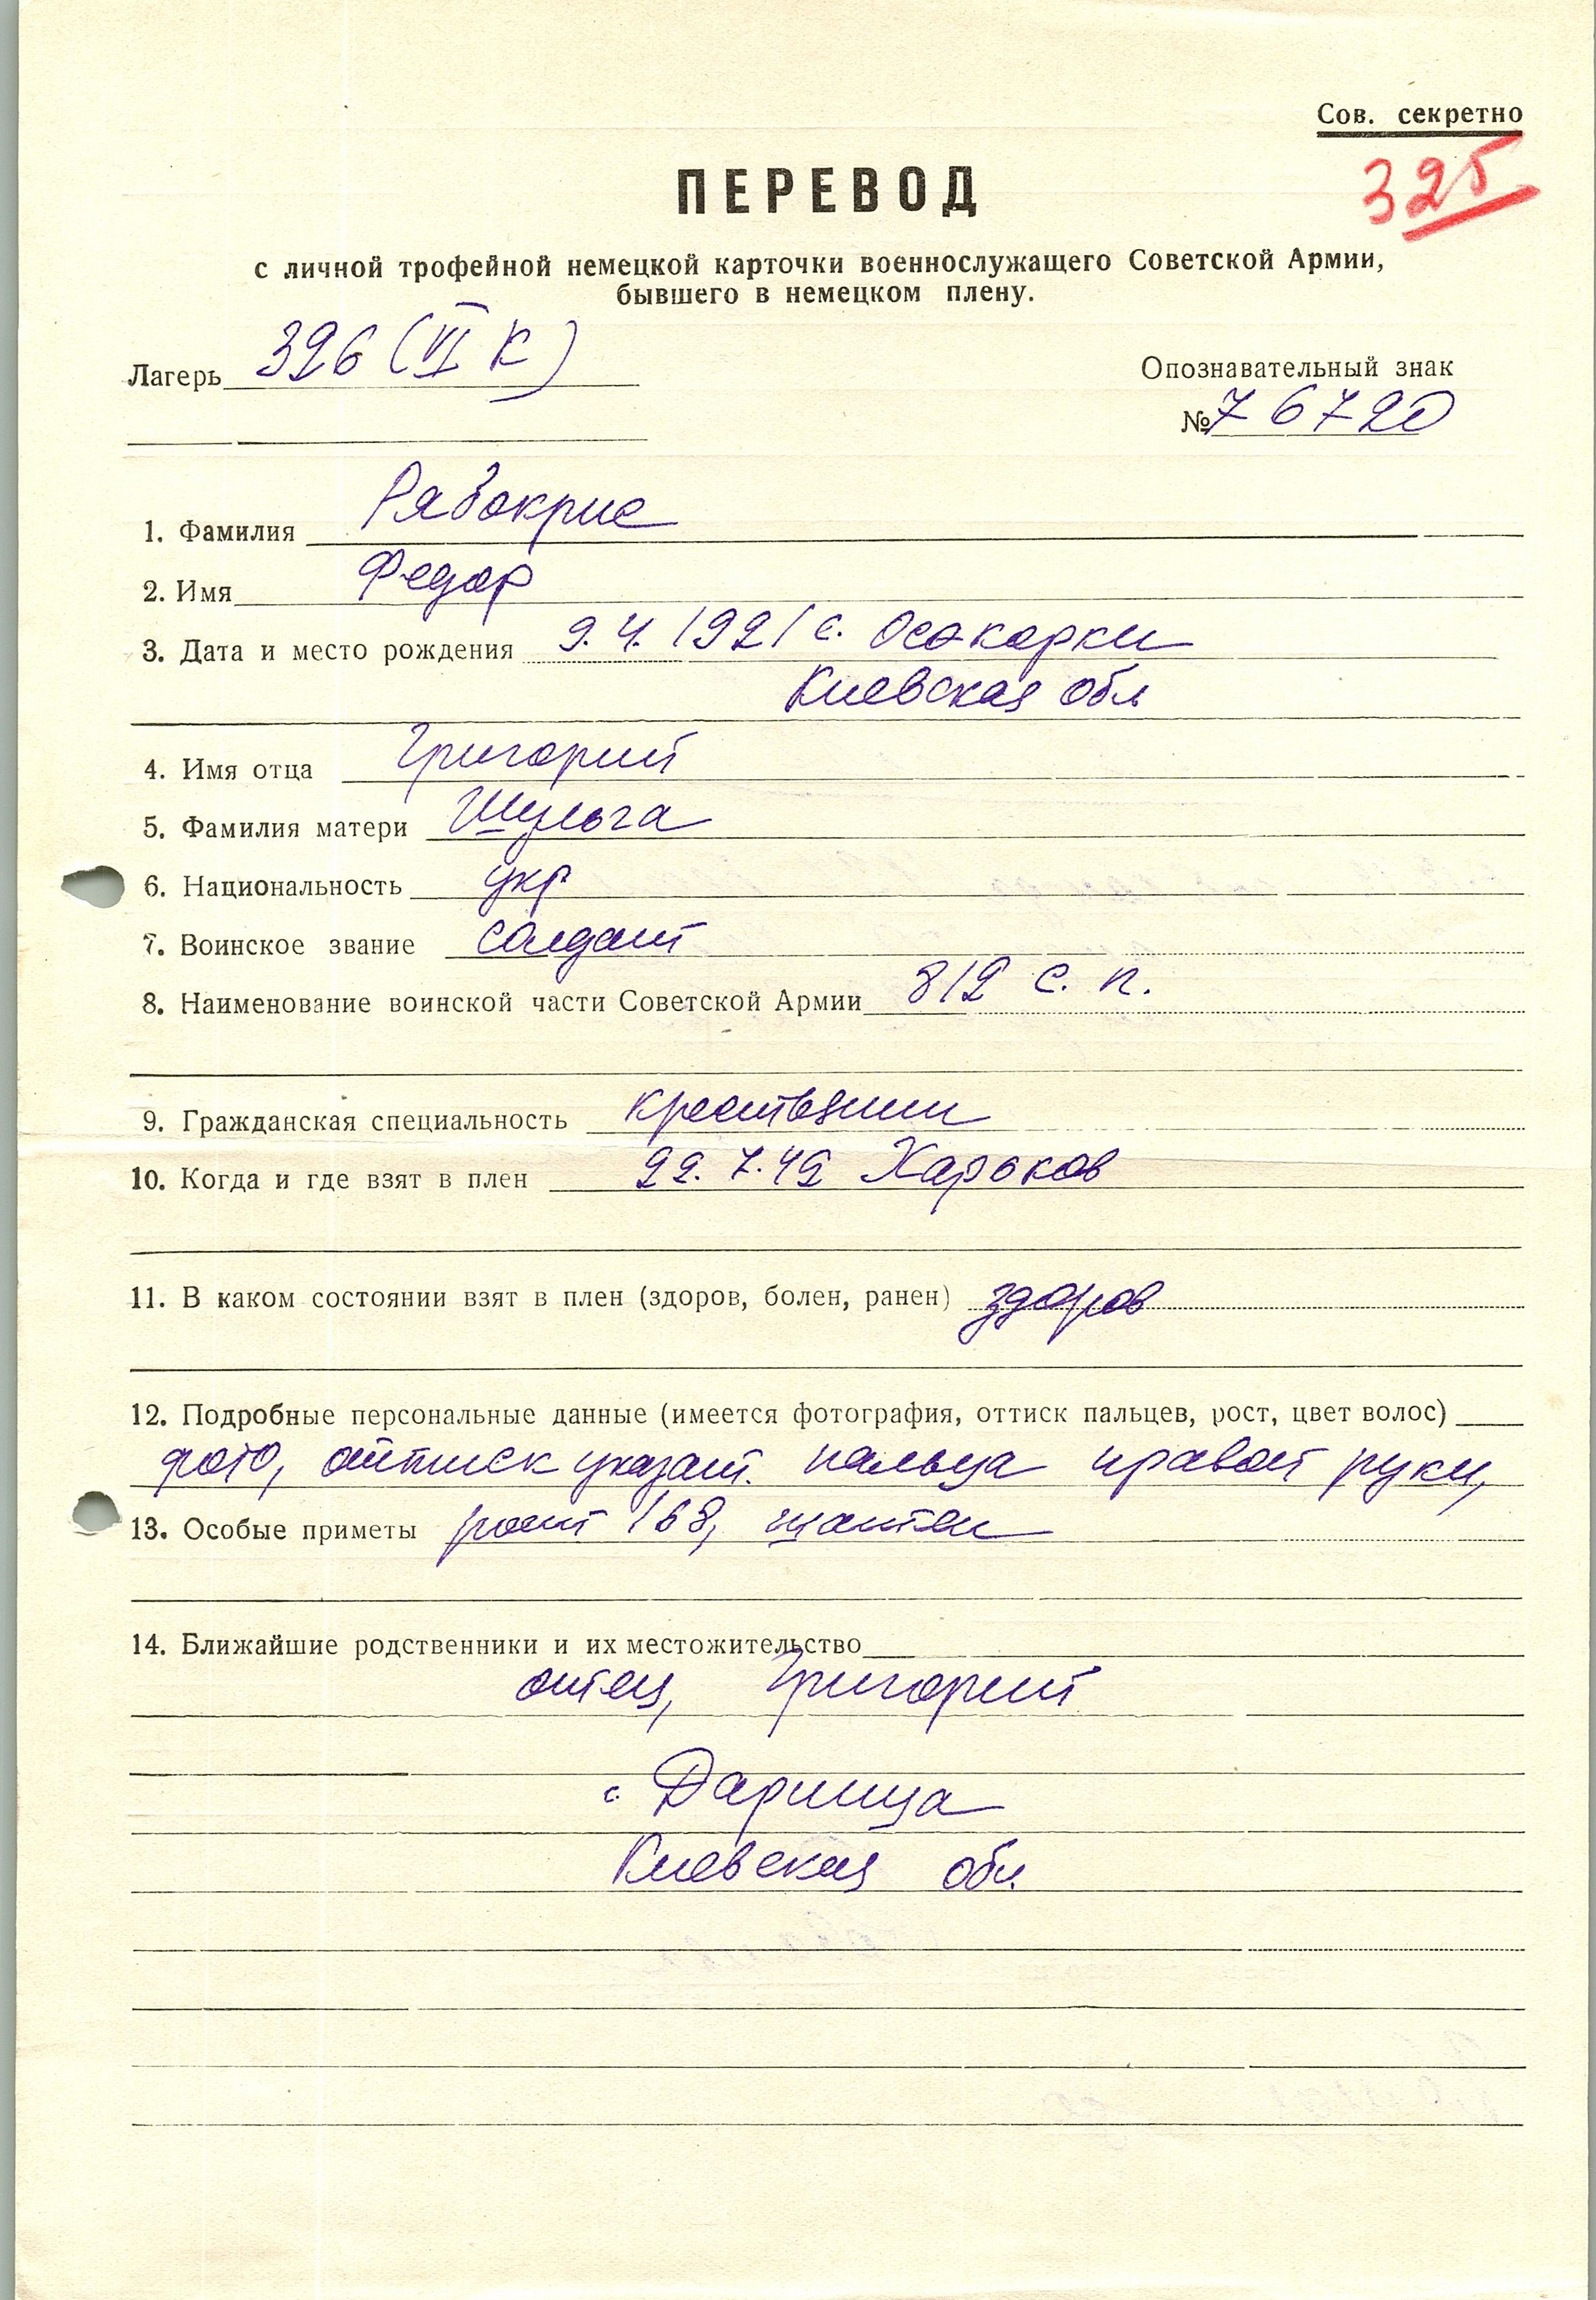 Сов. секретно
325
ПЕРЕВОД
с личной трофейной немецкой карточки военнослужащего Советской Армии,
бывшего в немецком плену.
Лагерь 326 (VI К)
Опознавательный знак
№ 76720
1. Фамилия Рябокрис
2. Имя Федор
3. Дата и место рождения 9.4.1921 с. Осокорки
Киевская обл
4. Имя отца Григорий
5. Фамилия матери Шульга
6. Национальность укр
7. Воинское звание солдат
8. Наименование воинской части Советской Армии 812 с. п.
9. Гражданская специальность крестьянин
10. Когда и где взят в плен 22.7.42 Харьков
11. В каком состоянии взят в плен (здоров, болен, ранен) здоров
12. Подробные персональные данные (имеется фотография, оттиск пальцев, рост, цвет волос)
фото, оттиск указат. пальца правой руки,
13. Особые приметы рост 168, шатен
14. Ближайшие родственники и их местожительство
отец, Григорий
с. Дарница
Киевская обл.